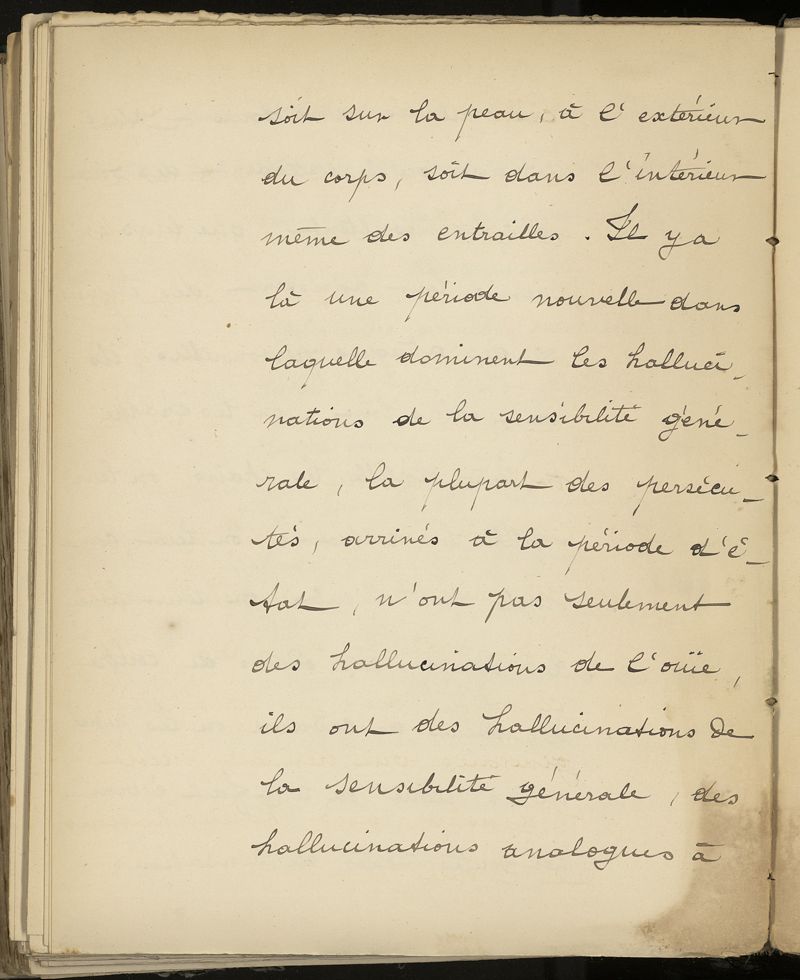 soit sur la peau, à l'extérieur
du corps, soit dans l'intérieur
même des entrailles. Il y a
là une période nouvelle dans
laquelle dominent les halluci-
nations de la sensibilité géné-
rale, la plupart des persécu-
tés, arrivés à la période d'é-
tat, n'ont pas seulement
des hallucinations de l'ouïe,
ils ont des hallucinations de
la sensibilité générale, des
hallucinations analogues à